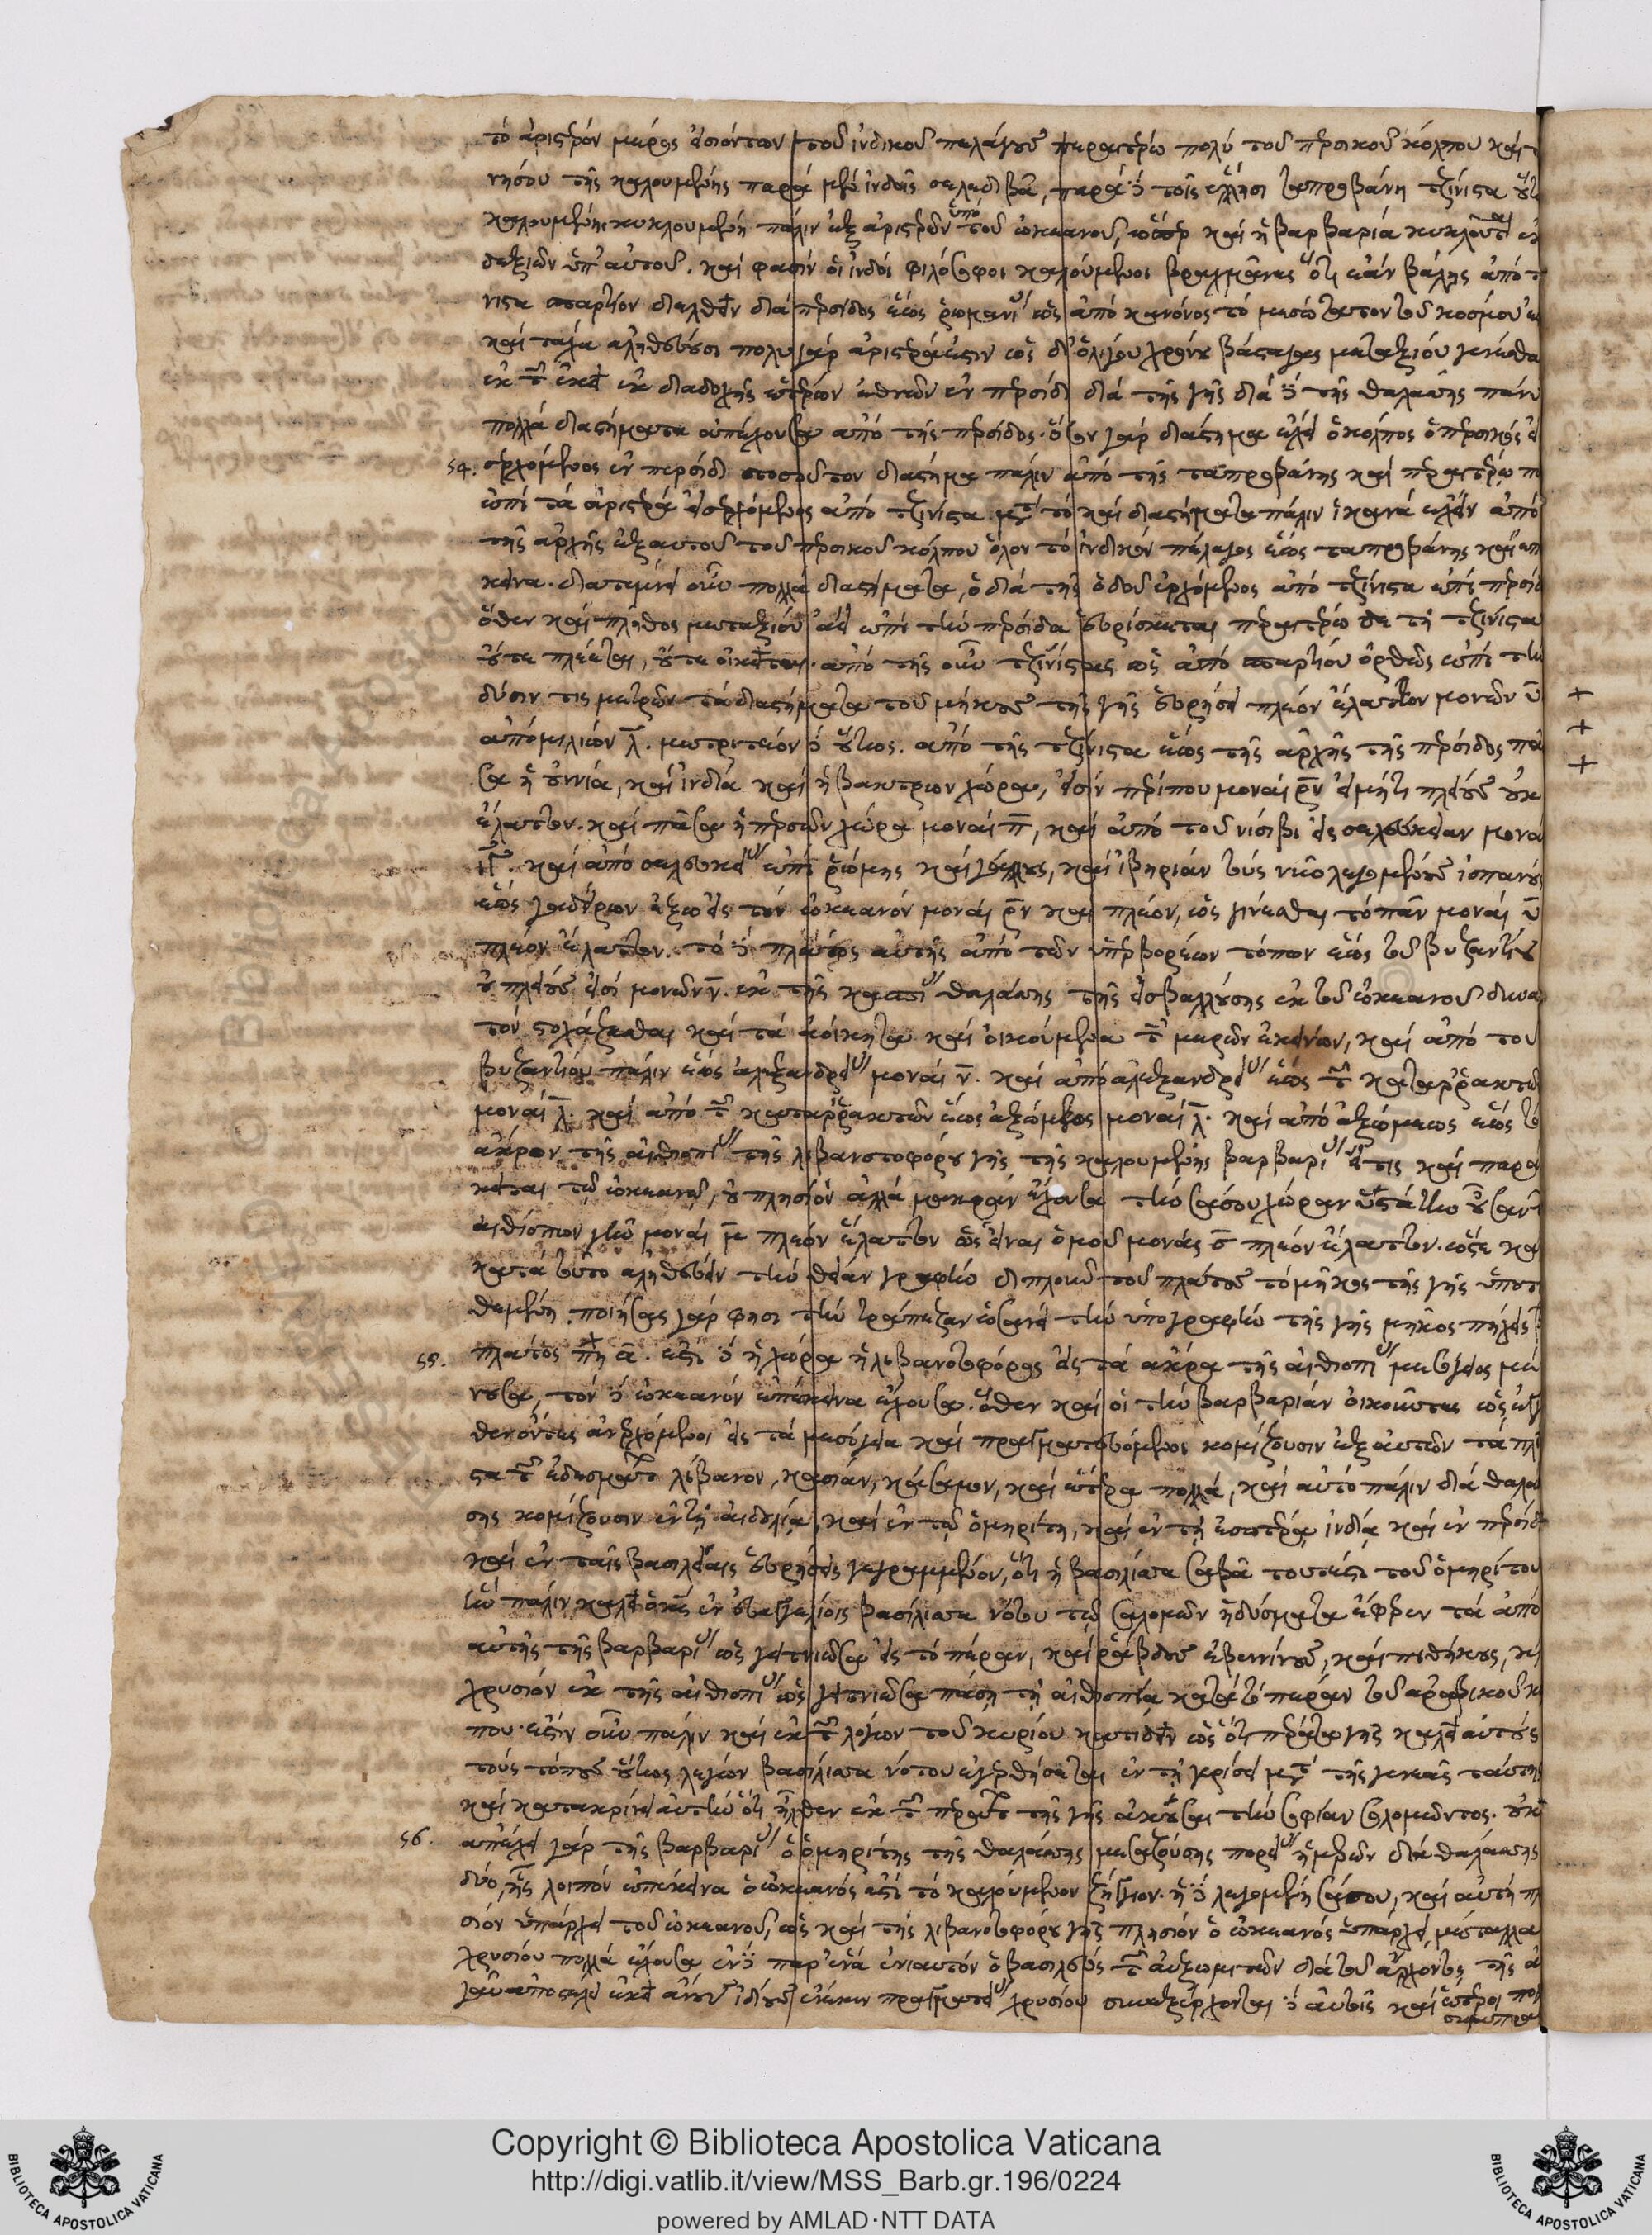 τὸ ἀριστερὸν μέρος εἰσιόντων τοῦ ἰνδικοῦ πελάγους περαιτέρω πολὺ τοῦ περσικοῦ κόλπου καὶ τ
νήσου τῆς καλουμένης παρὰ μὲν ἰνδοῖς σελεδίβα, παρὰ δὲ τοῖς ἕλλησι ταπροβάνη τζίνιστα οὕτω
καλουμένη κυκλουμένη πάλιν ἐξ ἀριστερῶν ὑπὸ τοῦ ὠκεανοῦ, ὥσπερ καὶ ἡ βαρβαρία κυκλοῦται ἐκ
δεξιῶν ὑπ' αὐτοῦ. καὶ φασὶν οἱ ἰνδοὶ φιλόσοφοι καλούμενοι βραχμᾶνες ὅτι ἐὰν βάλῃς ἀπὸ τ
νιστα σπαρτίον διελθεῖν διὰ περσίδος ἕως ῥωμανίας ὡς ἀπὸ κανόνος τὸ μεσώτατον τοῦ κόσμου
καὶ τάχα ἀληθεύουσι πολὺ γὰρ ἀριστερά ἐστιν ὡς δι' ὀλίγου χρόνου βασταγὰς μεταξίου γίνεσθαι
ἐκ τῶν ἐκεῖ ἐκ διαδοχῆς ἑτέρων ἐθνῶν ἐν περσίδι διὰ τῆς γῆς διὰ δὲ τῆς θαλάσσης πάνυ
πολλὰ διαστήματα ἀπέχουσα ἀπὸ τῆς περσίδος. ὅσον γὰρ διάστημα ἔχει ὁ κόλπος ὁ περσικὸς
54. ερχόμενος ἐν περσίδι τοσοῦτον διάστημα πάλιν ἀπὸ τῆς ταπροβάνης καὶ περαιτέρω π
ἐπὶ τὰ ἀριστερὰ εἰσερχόμενος ἀπὸ τζίνιστα μετὰ τὸ καὶ διαστήματα πάλιν ἱκανὰ ἔχειν ἀπὸ
τῆς ἀρχῆς ἐξ αὐτοῦ τοῦ περσικοῦ κόλπου ὅλον τὸ ἰνδικὸν πέλαγος ἕως ταπροβάνης καὶ ἐπ
κεινα. διατέμνει οὖν πολλὰ διαστήματα, ὁ διὰ τῆς ὁδοῦ ἐρχόμενος ἀπὸ τζίνιστα ἐπὶ περσίδ
ὅθεν καὶ πλῆθος μεταξίου ἀεὶ ἐπὶ τὴν περσίδα εὑρίσκεται περαιτέρω δὲ τῆ τζίνιστα
οὔτε πλέεται, οὔτε οἰκεῖται. ἀπὸ τῆς οὖν τζίνιστας ὡς ἀπὸ σπαρτίου ὀρθῶς ἐπὶ τὴν
δύσιν τις μετρῶν τὰ διαστήματα τοῦ μήκους τῆς γῆς εὑρήσει πλέον ἔλαττον μονῶν υ̅
ἀπὸ μιλίων λ̅. μετρητέον δὲ οὕτως. ἀπὸ τῆς τζίνιστα ἕως τῆς ἀρχῆς τῆς περσίδος πᾶ
σα ἡ οὐννία, καὶ ἰνδία καὶ ἡ βακτρίων χώρα, εἰσὶν περίπου μοναὶ ρ̅ν̅ εἰ μήτι πλείους οὐκ
ἔλαττον. καὶ πᾶσα ἡ περσῶν χώρα μοναὶ π̅, καὶ ἀπὸ τοῦ νισίβι εἰς σελεύκειαν μοναὶ
ι̅γ̅. καὶ ἀπὸ σελευκείας ἐπὶ ῥώμης καὶ γάλλους, καὶ ἰβηρίαν τοὺς νῦν λεγομένους ἱσπανοὺς
ἕως γαδείρων ἔξω εἰς τὸν ὠκεανὸν μοναὶ ρ̅ν̅ καὶ πλέον, ὡς γίνεσθαι τὸ πᾶν μοναὶ υ̅
πλέον ἔλαττον. τὸ δὲ πλάτος αὐτῆς ἀπὸ τῶν ὑπερβορείων τόπων ἕως τοῦ βυζαντίου
οὐ πλείους εἰσὶ μονῶν ν̅. ἐκ τῆς κασπίας θαλάσσης τῆς εἰσβαλλούσης ἐκ τοῦ ὠκεανοῦ δυνα
τὸν στοχάζεσθαι καὶ τὰ ἀοίκητα καὶ οἰκούμενα τῶν μερῶν ἐκείνων, καὶ ἀπὸ τοῦ
βυζαντίου πάλιν ἕως ἀλεξανδρείας μοναὶ ν̅. καὶ ἀπὸ ἀλεξανδρείας ἕως τῶν καταρράκτων
μοναὶ λ̅. καὶ ἀπὸ τῶν καταρρακτῶν ἕως ἀξώμεως μοναὶ λ̅. καὶ ἀπὸ ἀξώμεως ἕως τ
ἄκρων τῆς αἰθιοπίας τῆς λιβανοτοφόρου γῆς τῆς καλουμένης βαρβαρίας ἥτις καὶ παρά
κειται τῷ ὠκεανῷ, οὐ πλησίον ἀλλὰ μακρὰν ἔχουσα τὴν σάσου χώραν ἐσχάτην οὖσαν τ
αἰθιόπων γῆν μοναὶ μ̅ πλέον ἔλαττον ὡς εἶναι ὁμοῦ μονὰς σ̅ πλέον ἔλαττον. ὥστε κα
κατὰ τοῦτο ἀληθεύειν τὴν θείαν γραφὴν διπλοῦν τοῦ πλάτους τὸ μῆκος τῆς γῆς ὑποτ
θεμένη. ποιήσας γάρ φησι τὴν τράπεζαν ὡσανεὶ τὴν ὑπογραφὴν τῆς γῆς μῆκος πήχεις
55. πλάτος πῆχυ α̅. ἔστι δὲ ἡ χώρα ἡ λιβανοτοφόρος εἰς τὰ ἄκρα τῆς αἰθιοπίας μεσόγειος μέ
νουσα, τὸν δὲ ὠκεανὸν ἐπέκεινα ἔχουσα. ὅθεν καὶ οἱ τὴν βαρβαρίαν οἰκοῦντες ὡς ἐγγύ
θεν ὄντες ἀνερχόμενοι εἰς τὰ μεσόγεια καὶ πραγματευόμενοι κομίζουσιν ἐξ αὐτῶν τὰ πλεῖ
στα τῶν ἡδυσμάτων λίβανον, κασίαν, κάλαμον, καὶ ἕτερα πολλά, καὶ αὐτὸ πάλιν διὰ θαλάσ
σης κομίζουσιν ἐν τῇ ἀδουλία, καὶ ἐν τῷ ὁμηρίτῃ, καὶ ἐν τῇ ἐσωτέρᾳ ἰνδίᾳ καὶ ἐν περσίδι
καὶ ἐν ταῖς βασιλείαις εὑρήσεις γεγραμμένον, ὅτι ἡ βασίλισσα σαβᾶ τουτέστι τοῦ ὁμηρίτου
ἣν πάλιν καλεῖ ὁ κύριος ἐν εὐαγγελίοις βασίλισσα νότου τῷ σαλομὼν ἡδύσματα ἔφερεν τὰ ἀπὸ
αὐτῆς τῆς βαρβαρίας ὡς γειτνιῶσα εἰς τὸ πέραν, καὶ ῥάβδους ἐβεννίνους, καὶ πιθήκους, καὶ
χρυσίον ἐκ τῆς αἰθιοπίας ὡς γειτνιῶσα πάσῃ τῇ αἰθιοπίᾳ κατὰ τὸ πέραν τοῦ ἀραβικοῦ κ
που. ἔστιν οὖν πάλιν καὶ ἐκ τῶν λόγων τοῦ κυρίου κατιδεῖν ὡς ὅτι πέρατα γῆς καλεῖ αὐτοὺς
τοὺς τόπους οὕτως λέγων βασίλισσα νότου ἐγερθήσεται ἐν τῇ κρίσει μετὰ τῆς γενεᾶς ταύτης
καὶ κατακρινεῖ αὐτὴν ὅτι ἦλθεν ἐκ τῶν περάτων τῆς γῆς ἀκοῦσαι τὴν σοφίαν σολομῶντος. οὐκ
56. ἀπέχει γὰρ τῆς βαρβαρίας ὁ ὁμηρίτης τῆς θαλάσσης μεσαζούσης πορείας ἡμερῶν διὰ θαλάσσης
δύο, ἧς λοιπὸν ἐπέκεινα ὁ ὠκεανός ἐστι τὸ καλούμενον ζήγγιον. ἡ δὲ λεγομένη σάσου, καὶ αὐτὴ πλ
σίον ὑπάρχει τοῦ ὠκεανοῦ, ὡς καὶ τῆς λιβανοτοφόρου γῆς πλησίον ὁ ὠκεανὸς ὑπάρχει μέταλλα
χρυσίου πολλὰ ἔχουσα ἐν δὲ παρ' ἕνα ἐνιαυτὸν ὁ βασιλεὺς τῶν ἀξωμιτῶν διὰ τοῦ ἄρχοντος τῆς ἀ
γαῦ ἀποστέλλει ἐκεῖ ἀνθρώπους ἰδίους ἕνεκεν πραγματείας χρυσίου συνεξέρχονται δὲ αὐτοῖς καὶ ἕτεροι πολ
Copyright © Biblioteca Apostolica Vaticana
http://digi.vatlib.it/view/MSS_Barb.gr.196/0224
powered by AMLAD·NTT DATA
BIBLIOTECA APOSTOLICA VATICANA
BIBLIOTECA APOSTOLICA VATICANA